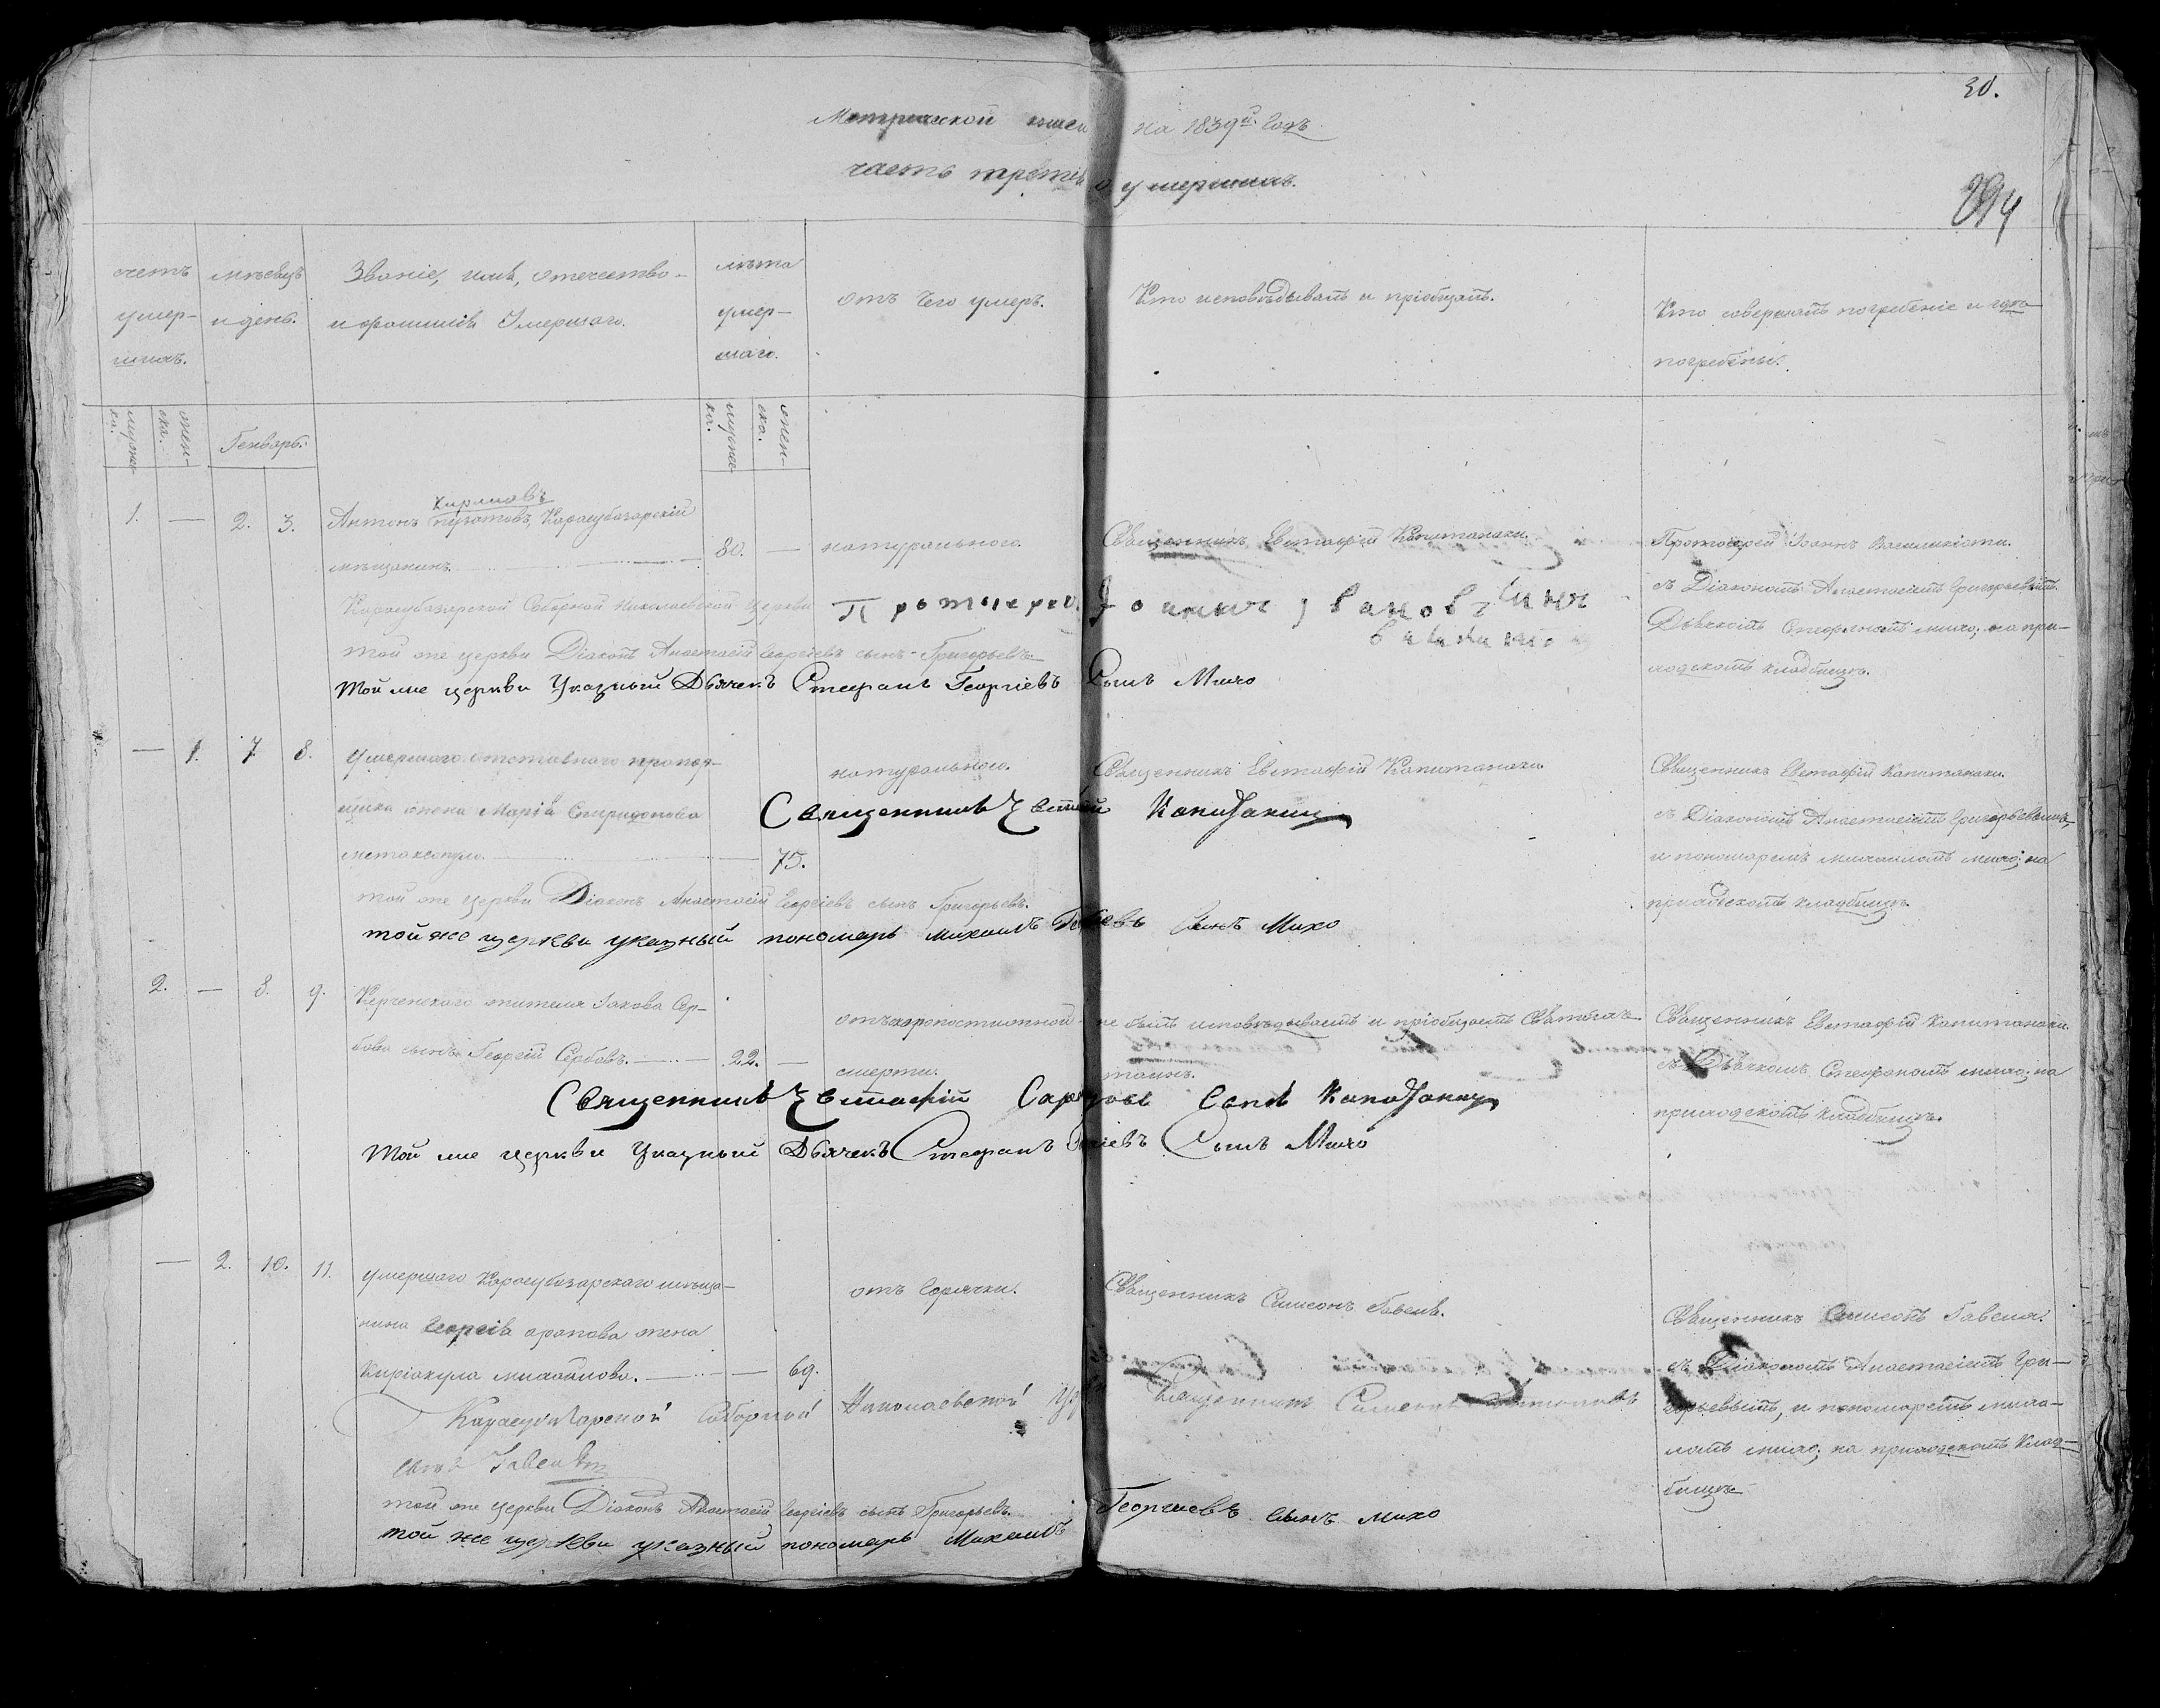 30.
Метрической книги на 1839й. Годъ
часть третія о умершихъ.
294
счетъ умер-шихъ.
мѣсяцъ и день.
Званіе, имя, отечество-
и фамилія Умершаго.
лѣта умер-шаго.
отъ Чего умеръ.
Кто исповѣдывалъ и пріобщалъ.
Кто совершалъ погребеніе и гдѣ
погребены.
мужеска.
женска.
Генварь.
мужеска.
женска.
1. — 2. 3.
Антонъ Карасубазарскій
мѣщанинъ. 80. —
натуральною.
Священникъ Евстафій Капитанаки.
Протоіерей Іоаннъ
съ Діакономъ Анастасіемъ Григорьевымъ.
Дьячкомъ Стефаномъ михо; на при-
ходскомъ кладбищѣ.
Карасубазарской Соборной Николаевской Церкви Протоиерей
той же церкви Діаконъ Анастасій Георгіевъ сынъ Григорьевъ
Той же церкви Указный Дьячекъ Стефанъ Георгіевъ Сынъ Михо
— 1. 7. 8.
Умершаго отставного прапор-
щика жена Марія Спиридонова
метаксопуло. — 75.
натуральною.
Священникъ Евстафій Капитанаки
Священникъ Евстафій Капитанаки
Священникъ Евстафій Капитанаки.
съ Діакономъ Анастасіемъ Григорьевымъ,
и пономаремъ михаиломъ михо; на
приходскомъ кладбищѣ.
той же церкви Діаконъ Анастасій Георгіевъ сынъ Григорьевъ.
той же церкви указный пономарь михаилъ сынъ Михо
2. — 8. 9.
Керченскаго жителя Іакова Сер-
бова сынъ Георгій Сербовъ. — 22. —
отъ скоропостижной
смерти.
не былъ исповѣдываемъ и пріобщаемъ Святыхъ
таинъ.
Священникъ Евстафій Капитанаки.
съ Дьячкомъ Стефаномъ михо; на
приходскомъ кладбищѣ.
Священникъ Евстафій Сынъ Капитанаки
Той же церкви Указный Дьячекъ Стефанъ Сынъ Михо
— 2. 10. 11.
умершаго Карасубазарскаго мѣща-
нина Георгія арапова жена
Киріакула михайлова. — 69.
отъ Горячки.
Священникъ Симеонъ Гавеля.
Священникъ Симеонъ Гавеля.
съ Діакономъ Анастасіемъ Гри-
горьевымъ, и пономаремъ миха-
ломъ михо; на приходскомъ Клад-
бищѣ.
Карасубазарской Соборной Николаевской Священникъ Симеонъ
сынъ
той же церкви Діаконъ Анастасій Георгіевъ сынъ Григорьевъ.
той же церкви указный пономарь Михаилъ Георгиевъ сынъ михо